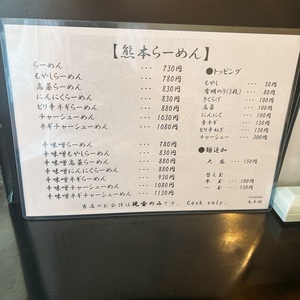 【熊本らーめん】
らーめん ・・・ 730円
もやしらーめん ・・・ 780円
高菜らーめん ・・・ 830円
にんにくらーめん ・・・ 830円
ピリ辛ネギらーめん ・・・ 880円
チャーシューめん ・・・ 1030円
ネギチャーシューめん ・・・ 1080円
辛味噌らーめん ・・・ 780円
辛味噌もやしらーめん ・・・ 830円
辛味噌高菜らーめん ・・・ 880円
辛味噌にんにくらーめん ・・・ 880円
辛味噌ネギらーめん ・・・ 930円
辛味噌チャーシューめん ・・・ 1080円
辛味噌ネギチャーシューめん ・・・ 1130円
●トッピング
もやし ・・・ 50円
有明のり(5枚) ・・・ 80円
きくらげ ・・・ 100円
高菜 ・・・ 100円
にんにく ・・・ 100円
青ネギ ・・・ 150円
ピリ辛ねぎ ・・・ 150円
チャーシュー ・・・ 300円
●麺追加
大盛 ・・・ 150円
替え玉
半玉 ・・・ 100円
一玉 ・・・ 150円
当店のお会計は現金のみです。 Cash only.